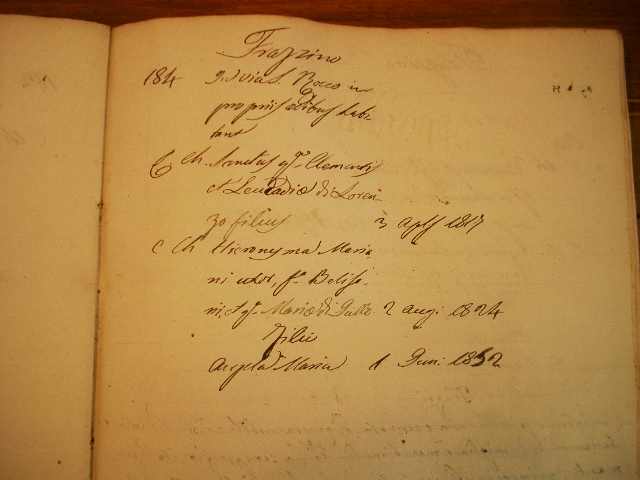 Frazzino
184 In via S. Rocco in
propriis ædibus habi
tant
C Ch. Sanctus qm Clementis
et Leucadiæ di Loren
zo filius 3 apls 1817
C Ch. Hieronyma Maria
ni uxor, fa Belisa
rii, et qm Mariæ di Gallo 2 augi 1824
Filii
Angela Maria 1 Juni 1852